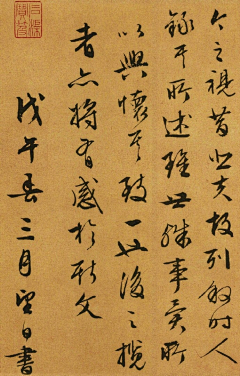 今之視昔悲夫故列叙時人
錄其所述雖世殊事異所
以興懷其致一也後之攬
者亦將有感於斯文
戊午春三月望日書